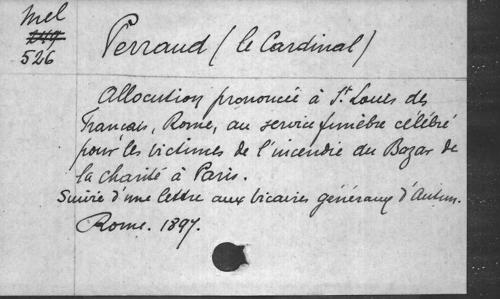 Mel
249
526
Perraud (le Cardinal)
Allocution prononcée à St Louis des
Français, Rome, au service funèbre célébré
pour les victimes de l'incendie du Bazar de
la charité à Paris.
Suivie d'une lettre aux vicaires généraux d'Autun.
Rome. 1897.